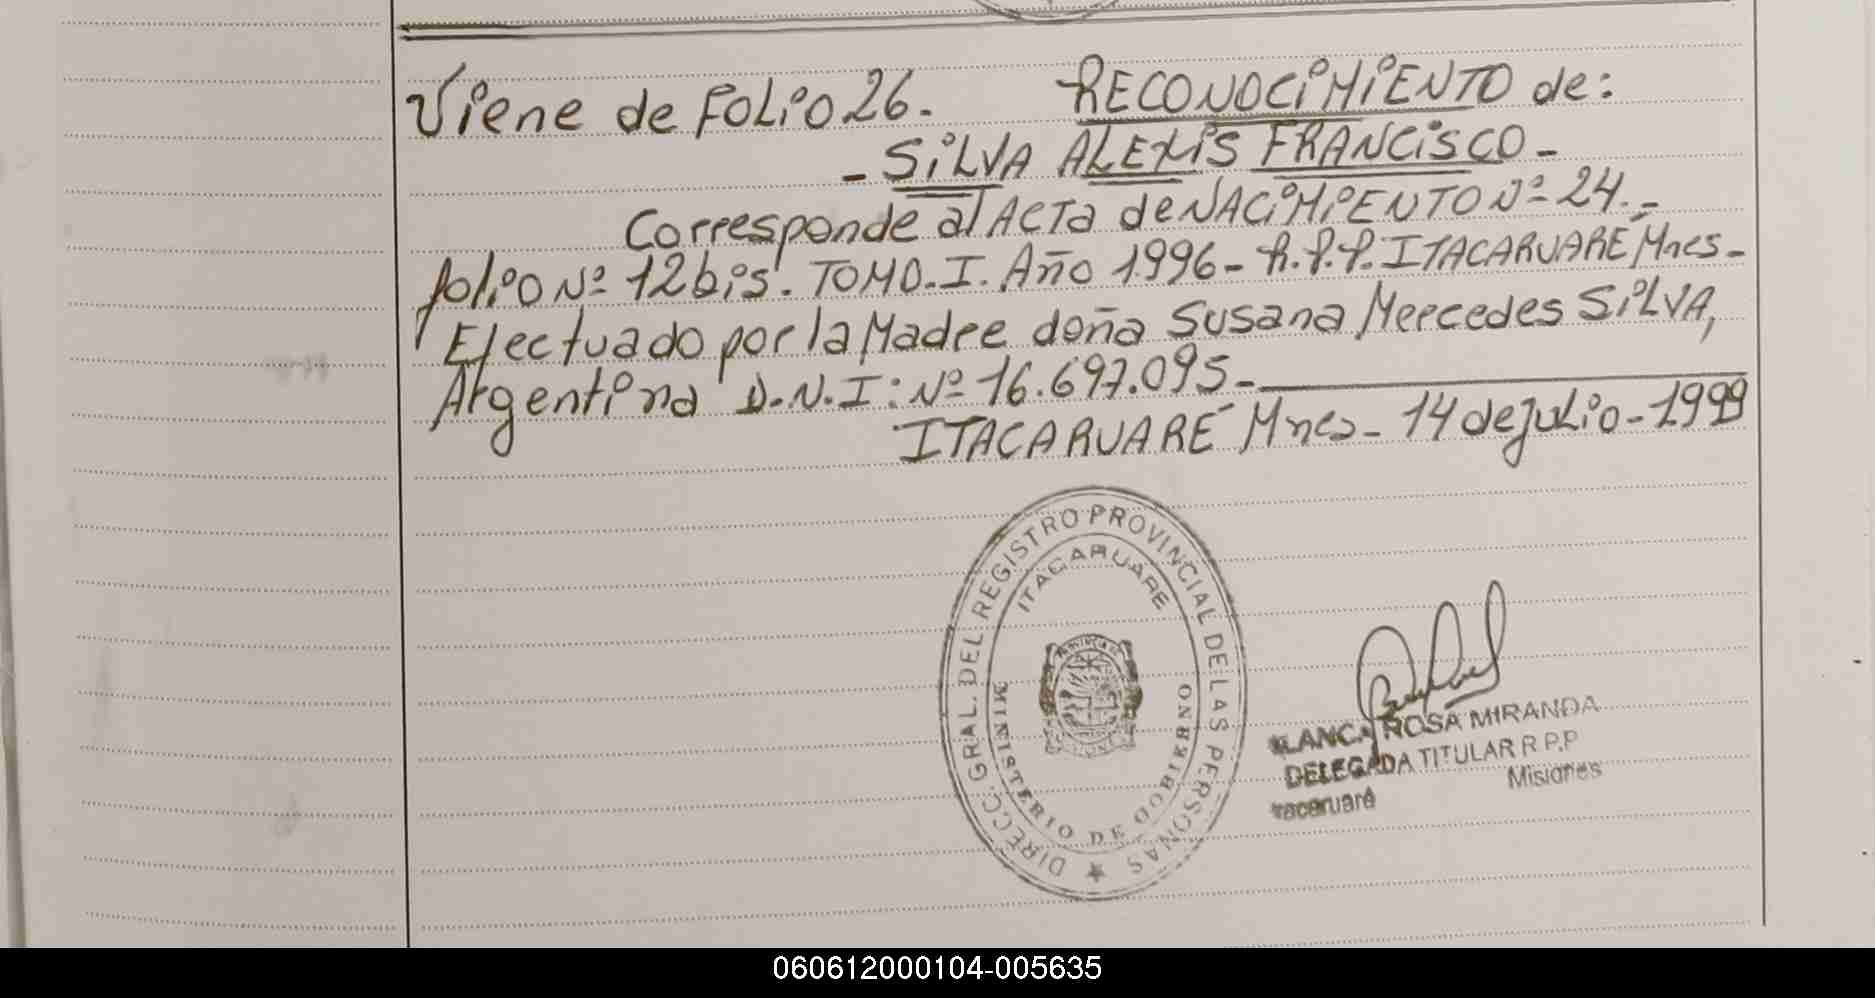 Viene de FOLIO 26. RECONOCIMIENTO de:
- SILVA ALEXIS FRANCISCO -
Corresponde al ACTA de NACIMIENTO Nº 24.-
folio Nº 12 bis. TOMO. I. Año 1996 - R.P.P. ITACARUARE Mnes -
Efectuado por la Madre doña Susana Mercedes SILVA,
Argentina D.N.I: Nº 16.697.095 -
ITACARUARE Mnes - 14 de julio - 1999
DIRECC. GRAL. DEL REGISTRO PROVINCIAL DE LAS PERSONAS
ITACARUARE
MINISTERIO DE GOBIERNO
BLANCA ROSA MIRANDA
DELEGADA TITULAR R.P.P
Itacaruaré Misiones
060612000104-005635